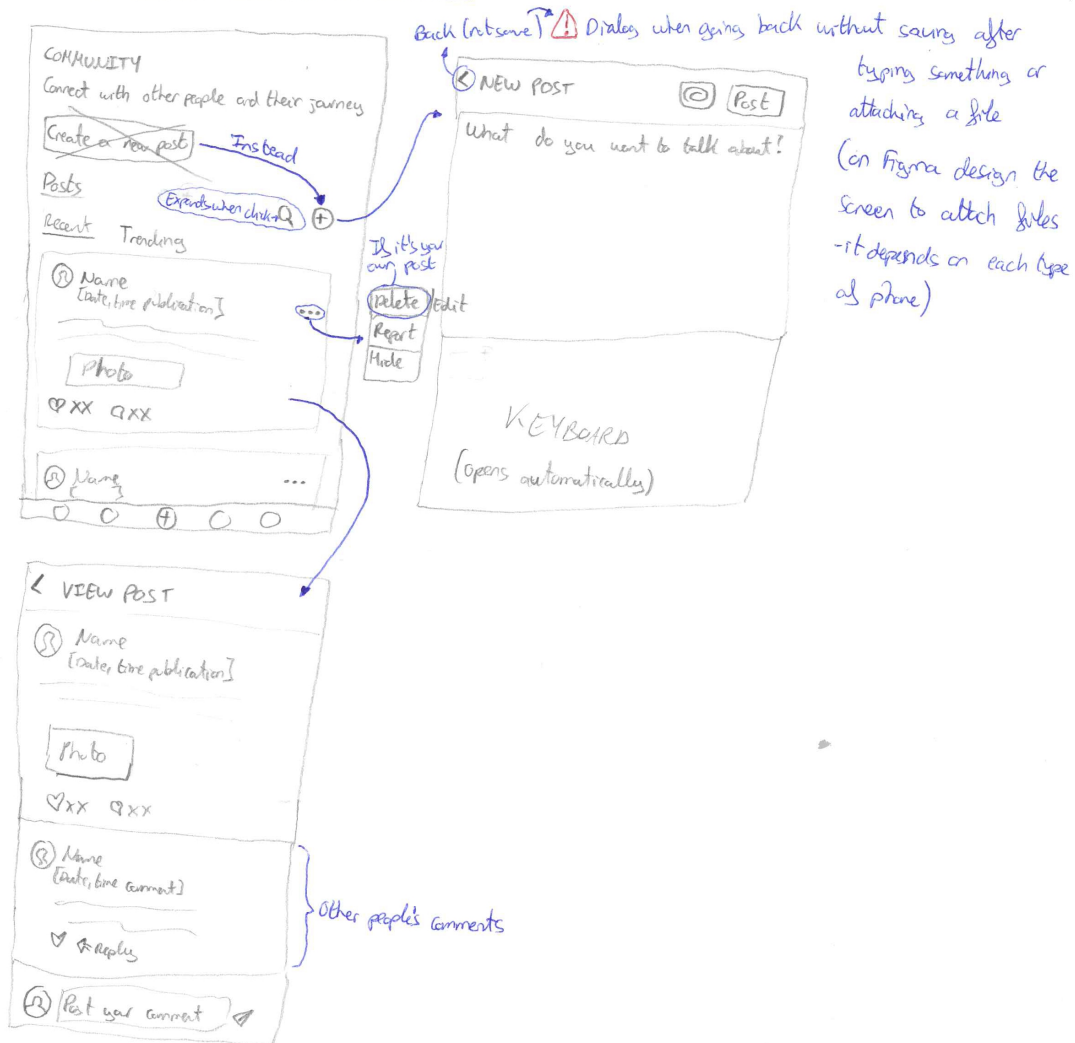 COMMUNITY
Connect with other people and their journey
Create a new post
Instead
Posts
Expands when click
Recent Trending
Name
[Date, time publication]
Photo
XX XX
Name
[ ]
If it's your
own post
Delete/Edit
Report
Hide
Back (not save)
Dialog when going back without saving after
typing something or
attaching a file
(on Figma design the
screen to attach files
-it depends on each type
of phone)
NEW POST
Post
What do you want to talk about?
KEYBOARD
(opens automatically)
VIEW POST
Name
[Date, time publication]
Photo
XX XX
Name
[Date, time comment]
Reply
Other people's comments
Post your comment